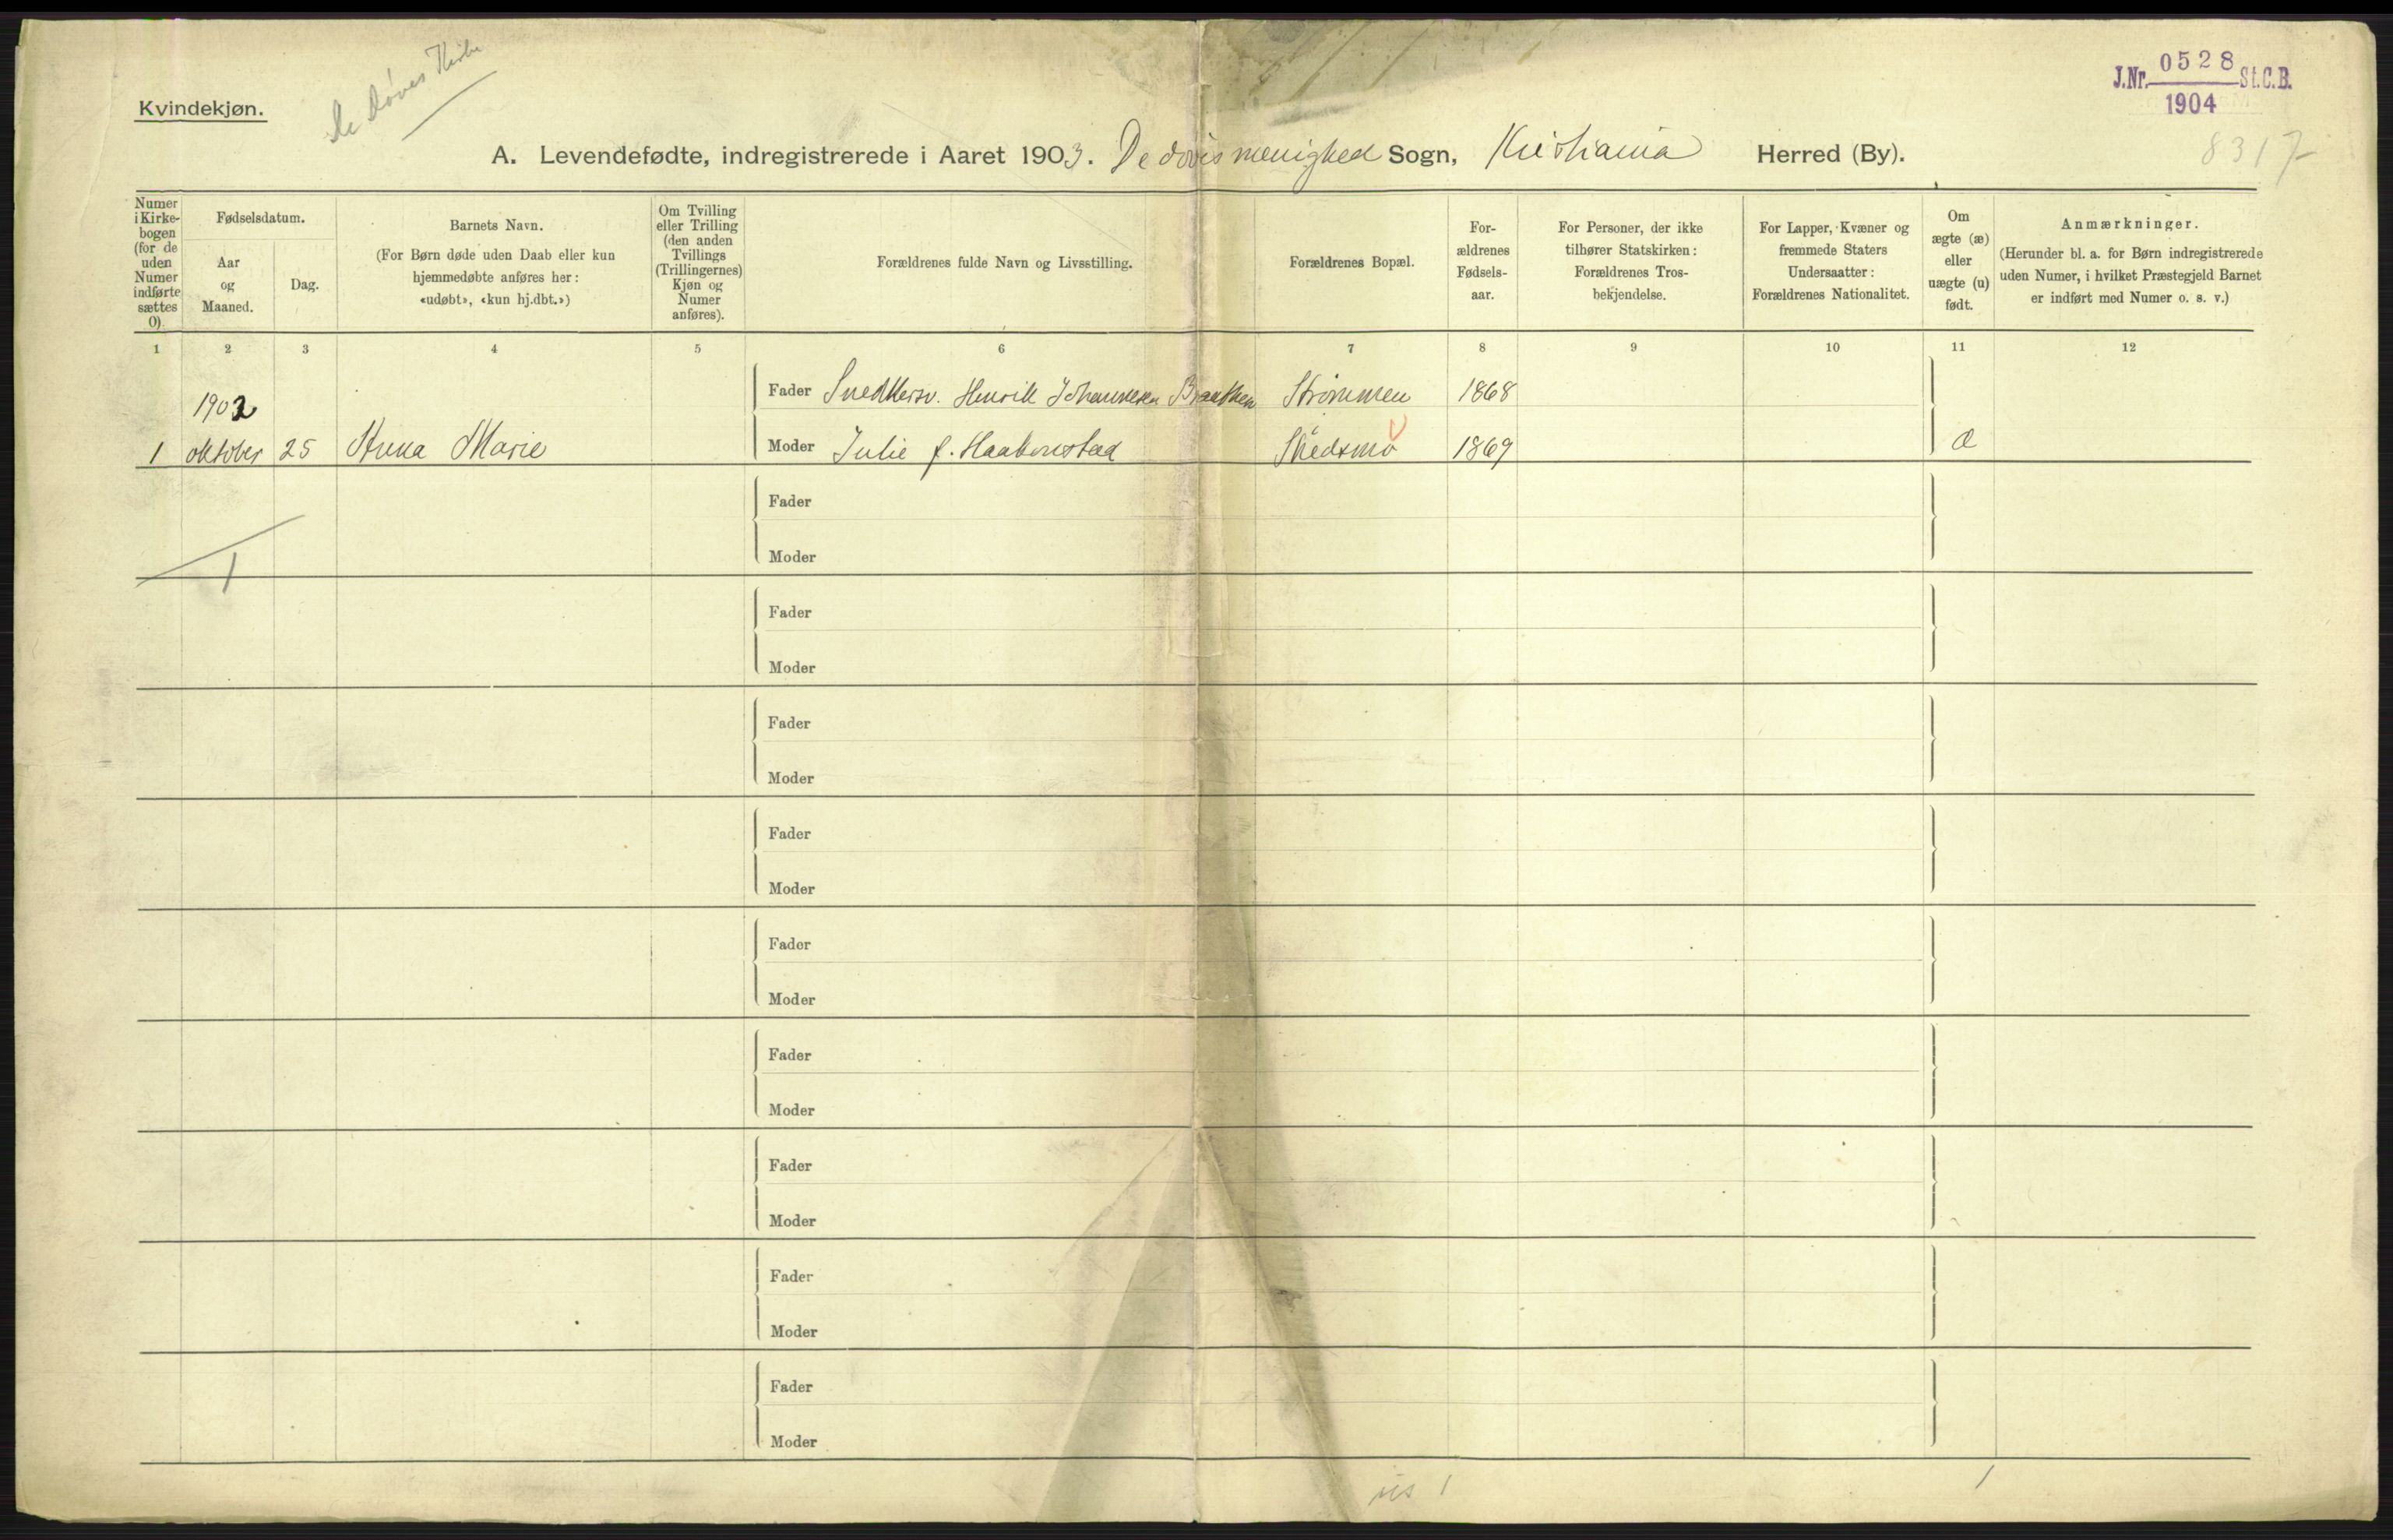 De Døves Kirke
J.Nr. 0528 St.C.B.
1904
8317
Kvindekjøn.
A. Levendefødte, indregistrerede i Aaret 1903. De døves menighed Sogn, Kristiania Herred (By).
Numer
i Kirke-
bogen
(for de
uden
Numer
indførte
sættes
0).
Fødselsdatum.
Aar
og
Maaned.
Dag.
Barnets Navn.
(For Børn døde uden Daab eller kun
hjemmedøbte anføres her:
«udøbt», «kun hj.dbt.»)
Om Tvilling
eller Trilling
(den anden
Tvillings
(Trillingernes)
Kjøn og
Numer
anføres).
Forældrenes fulde Navn og Livsstilling.
Forældrenes Bopæl.
For-
ældrenes
Fødsels-
aar.
For Personer, der ikke
tilhører Statskirken:
Forældrenes Tros-
bekjendelse.
For Lapper, Kvæner og
fremmede Staters
Undersaatter:
Forældrenes Nationalitet.
Om
ægte (æ)
eller
uægte (u)
født.
Anmærkninger.
(Herunder bl. a. for Børn indregistrerede
uden Numer, i hvilket Præstegjeld Barnet
er indført med Numer o. s. v.)
1 2 3 4 5 6 7 8 9 10 11 12
1902
Fader Snedkersv. Henrik Johannesen Braathen Strømmen 1868
1 oktober 25 Anna Marie Moder Julie f. Haakonstad Skedsmo 1869 æ
Fader
1
Moder
Fader
Moder
Fader
Moder
Fader
Moder
Fader
Moder
Fader
Moder
Fader
Moder
Fader
Moder
Fader
Moder
1
1